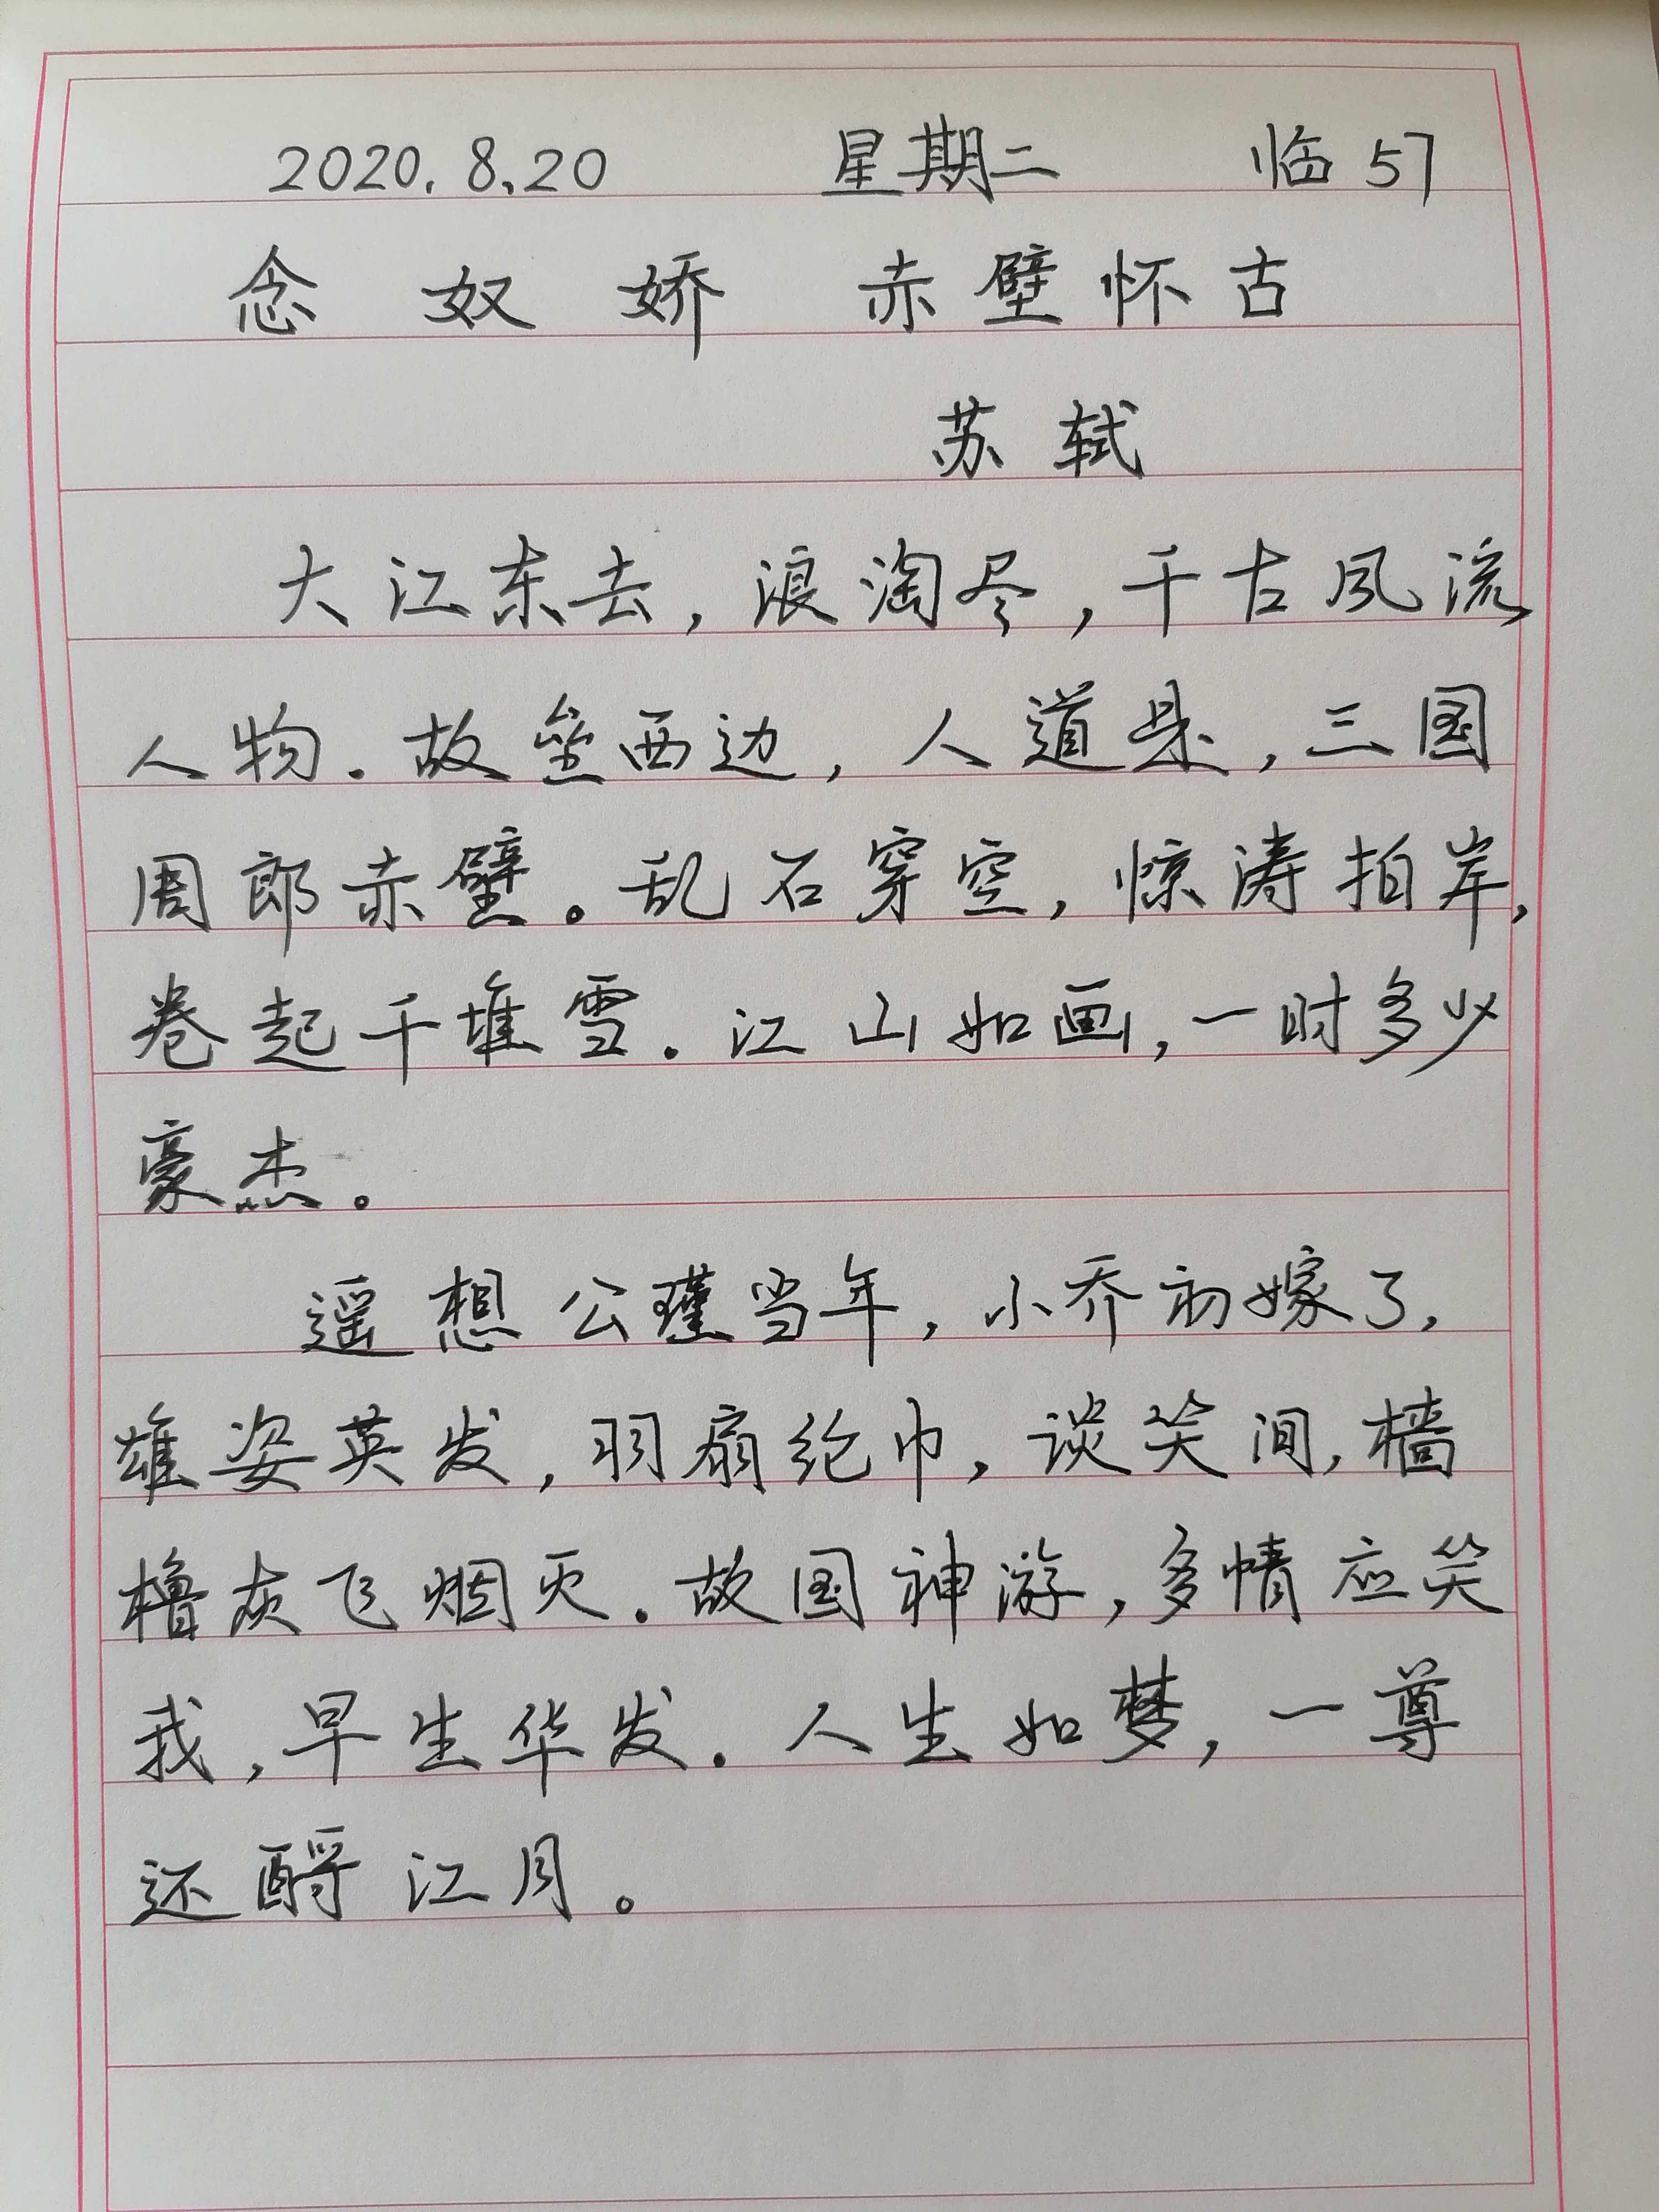 2020.8.20 星期二 临57
念奴娇 赤壁怀古
苏轼
大江东去,浪淘尽,千古风流
人物.故垒西边,人道是,三国
周郎赤壁。乱石穿空,惊涛拍岸,
卷起千堆雪.江山如画,一时多少
豪杰。
遥想公瑾当年,小乔初嫁了,
雄姿英发,羽扇纶巾,谈笑间,樯
橹灰飞烟灭.故国神游,多情应笑
我,早生华发.人生如梦,一尊
还酹江月。